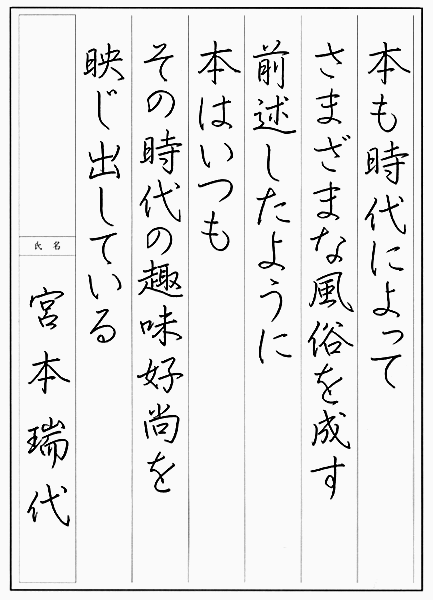 本も時代によって
さまざまな風俗を成す
前述したように
本はいつも
その時代の趣味好尚を
映じ出している
氏名
宮本瑞代